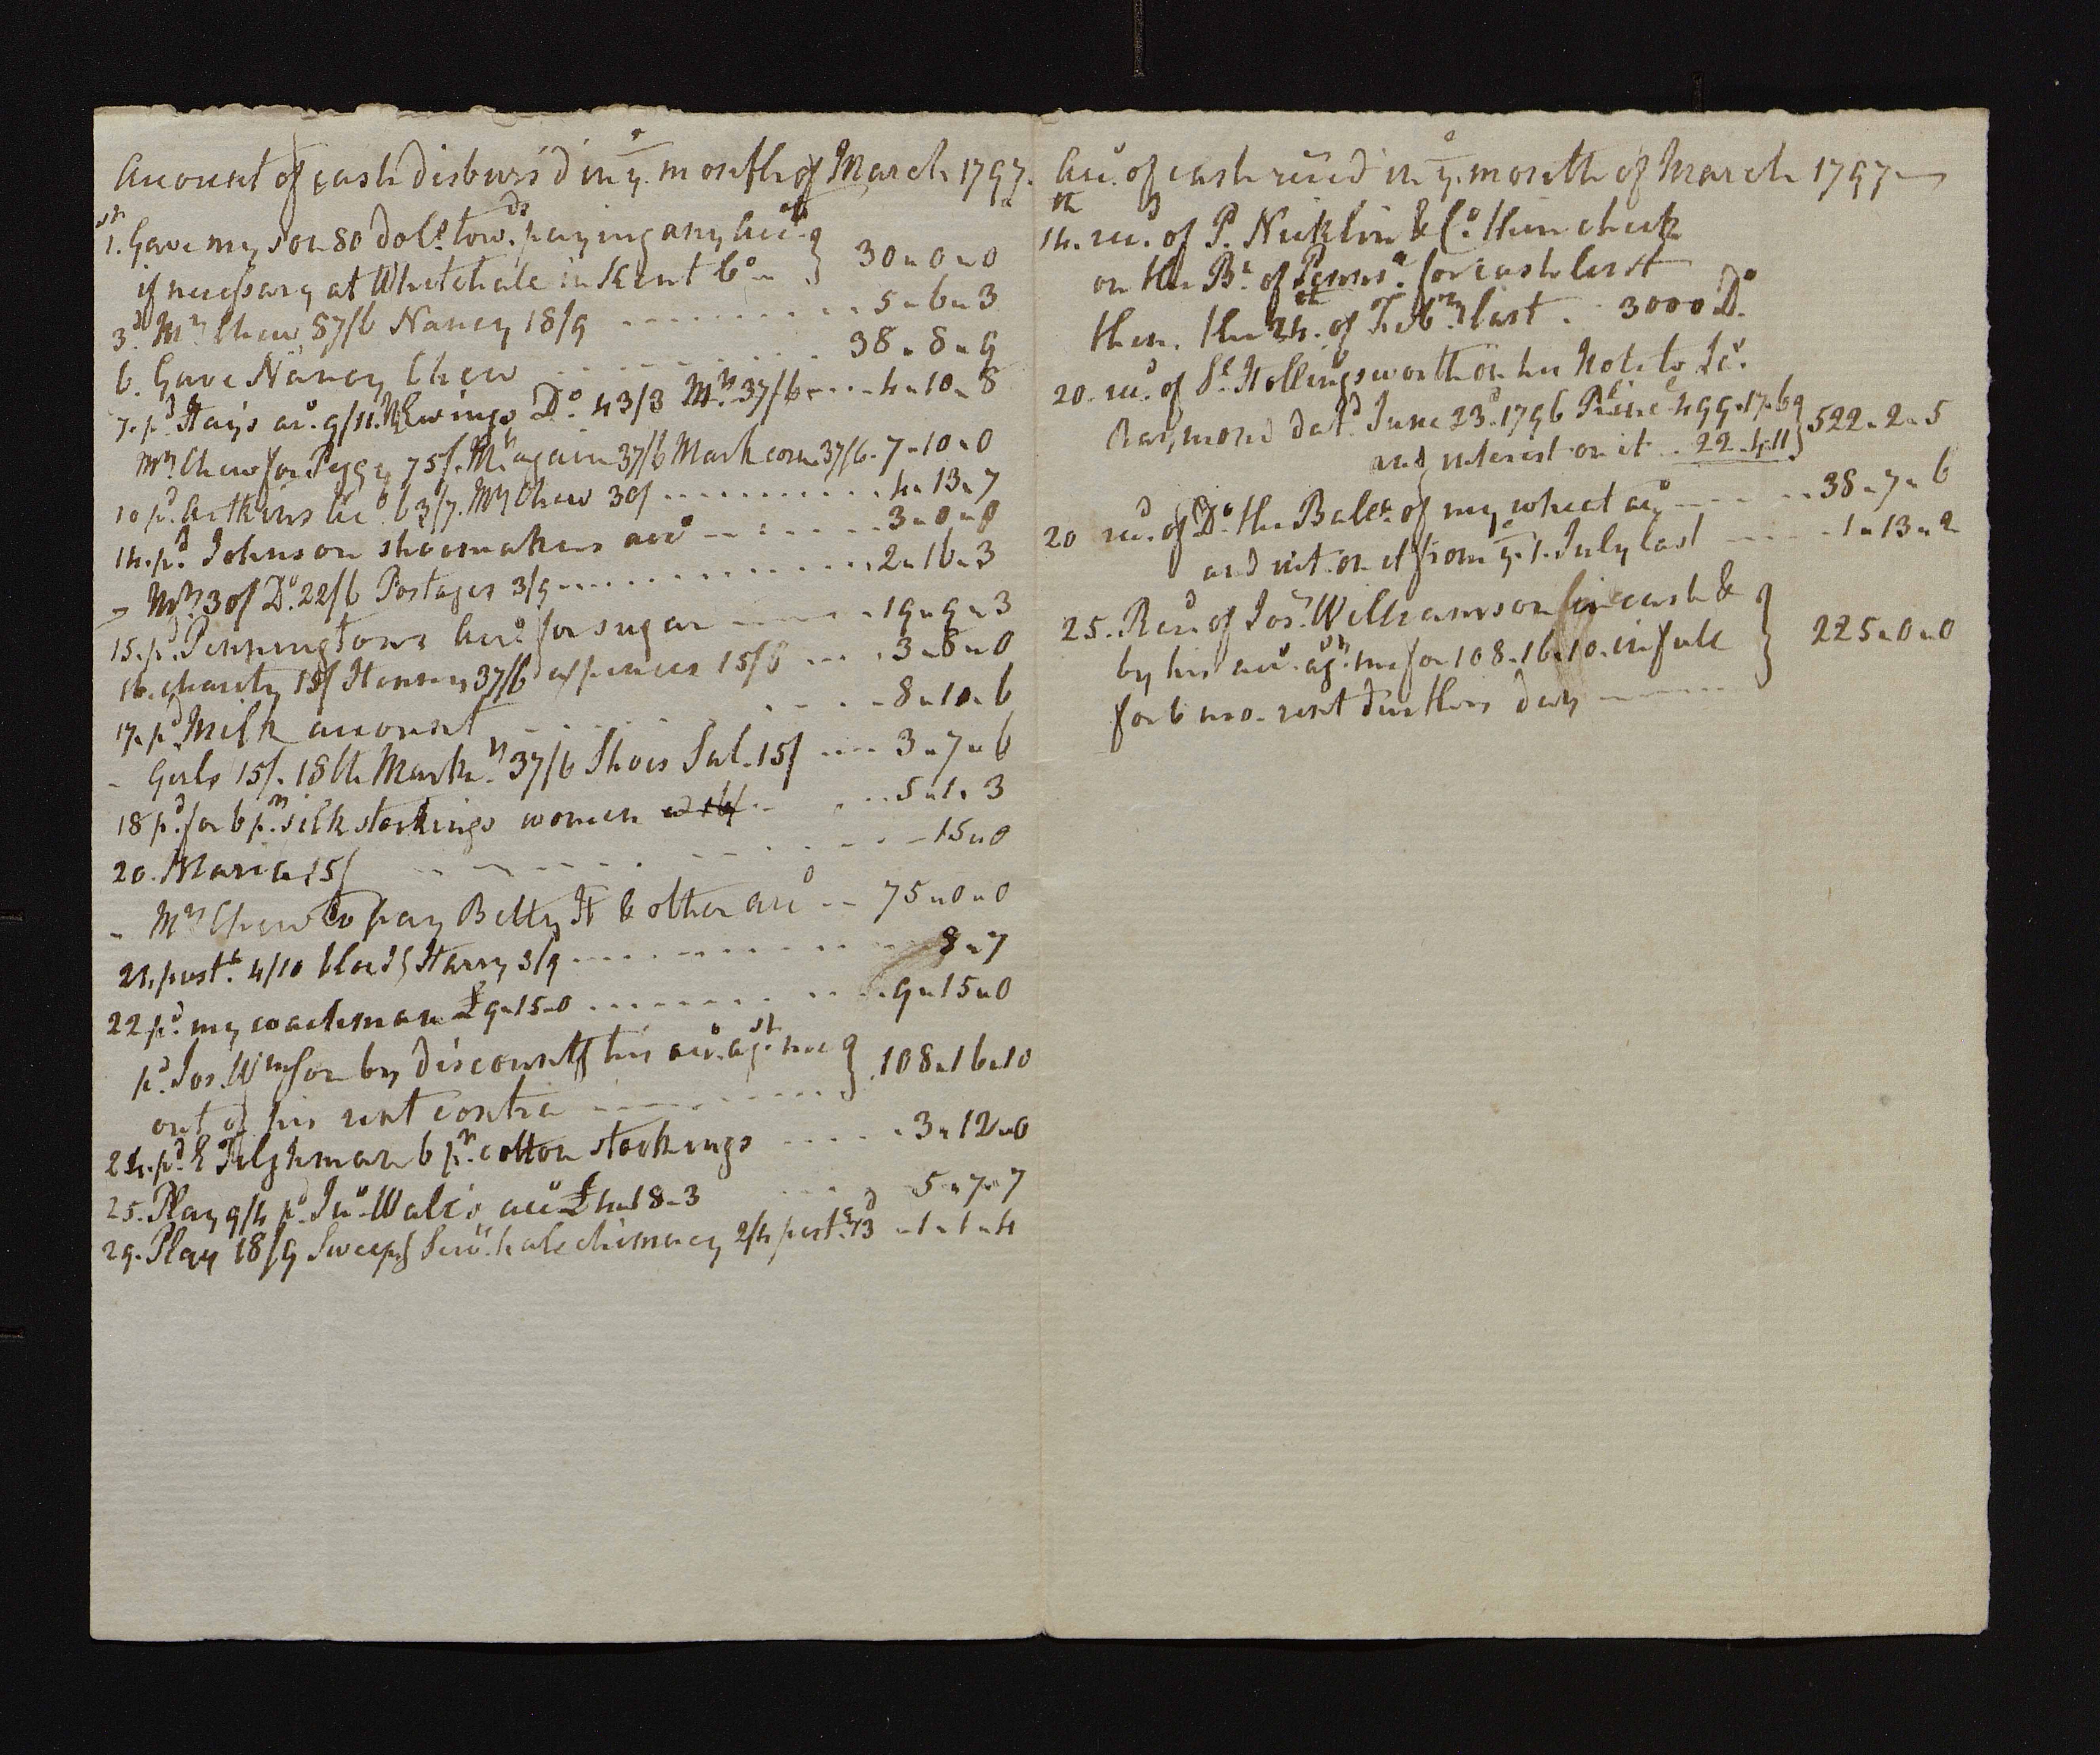 Account of cash disburs'd in ye. month of March 1797.
1st. Gave my son 80 dols. towds. paying any accts.
if necessary at Whitehall in Kent Co. 30-0-0
3d. Mrs Chew 87/6 Nancy 18/9 5-6-3
6. Gave Nancy Chew 38-8-9
7. pd. Hays acct. 9/11. Ewings Do. 43/3 Mrs. 37/6 4-10-8
Mrs Chew for Peggy 75/. Mrs again 37/6 Mark coru 37/6. 7-10-0
10 pd. Aitkins acct. 63/7. Mrs Chew 30/ 4-13-7
14. pd. Johnson shoemakers acct 3-0-0
- Mrs. 30/ Do. 22/6 Postages 3/9 2-16-3
15. pd. Penningtons acct. for sugar 19-9-3
16. charity 15/ Henry 37/6 expences 15/6 3-8-0
17. pd. Milk account 8-10-6
- Girls 15/. 18th Mark. 37/6 Shoes Sal. 15/ 3-7-6
18 pd. for 6 pr. silk stockings women 5-1-3
20. Maria 15/ 15-0
- Mrs Chew to pay Betty H & other acct 75-0-0
21. post. 4/10 Harry 3/9 8-7
22 pd. my coachman £9-15-0 9-15-0
pd. Jos. Wmson by discountg his acct. agst. me
out of his rent contra 108-16-10
24. pd. E Tilghman 6 pr. cotton stockings 3-12-0
25. Play 9/4 pd. Jno. Wall's acct £4-18-3 5-7-7
29. Play 18/9 Sweepg chimney 2/4 post. 3d -1-1-4
Acct. of cash recd in ye. month of March 1797
14th. recd. of P. Nicklin & Co. their check
on the Bk. of Pennsa. for cash lent
them. the 24th. of Febry last. 3000 Do.
20. recd. of Ll. Hollingsworth on his Note to Lt.
Raymond datd. June 23d. 1796 Prine. 499-17-6
and interest on it.. 22-4-11 522-2-5
20 recd. of Do. the Balce. of my wheat acct 38-7-6
and int. on it from ye. 1. July last 1-13-2
25. Recd of Jos. Williamson in cash &
by his acct. agst. me for 108-16-10. in full 225-0-0
for 6 mo. rent due this day